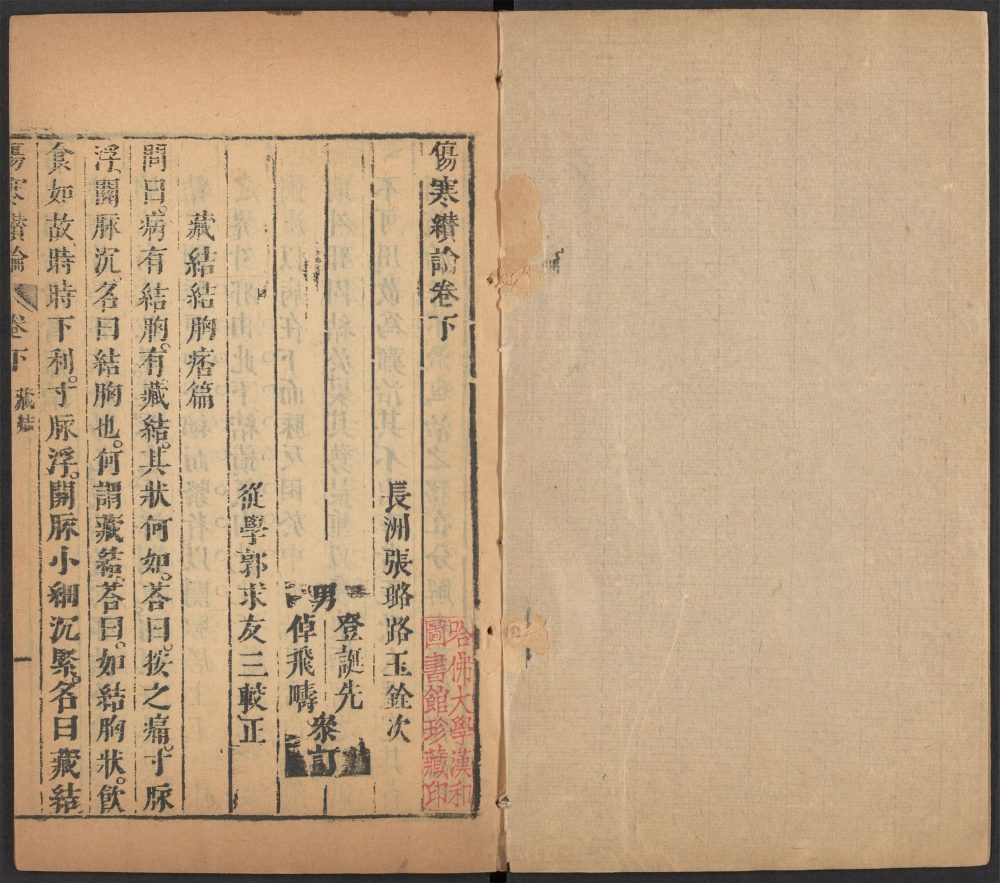 傷寒纘論卷下
長洲張璐路玉銓次
男
登誕先
倬飛疇
叅訂
從學郭求友三較正
藏結結胸痞篇
問曰。病有結胸。有藏結。其狀何如。荅曰。按之痛。寸脉
浮。關脉沉。名曰結胸也。何謂藏結。荅曰。如結胸狀。飲
食如故。時時下利。寸脉浮。關脉小細沉緊。名曰藏結
傷寒纘論
卷下
藏結
一
哈佛大學漢和
圖書館珍藏印